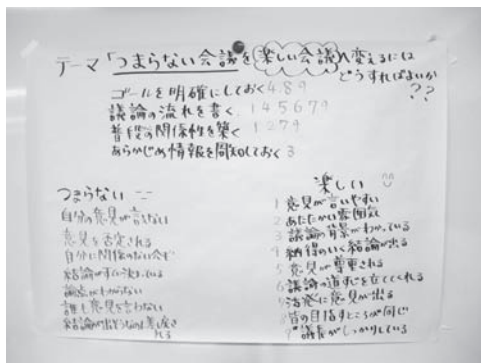 テーマ「つまらない会議を楽しい会議へ変えるには
どうすればよいか
??
ゴールを明確にしておく 4 8 9
議論の流れを書く 1 4 5 6 7 9
普段の関係性を築く 1 2 7 9
あらかじめ情報を周知しておく 3
つまらない
自分の意見が言えない
意見を否定される
自分に関係のない会議
結論がすでに決まっている
論点がわからない
誰も意見を言わない
結論が出そうなのに差し戻される
楽しい
1 意見が言いやすい
2 あたたかい雰囲気
3 議論の背景がわかっている
4 納得のいく結論が出る
5 意見が尊重される
6 議論の道すじを立ててくれる
7 活発に意見が出る
8 皆の目指すところが同じ
9 議長がしっかりしている